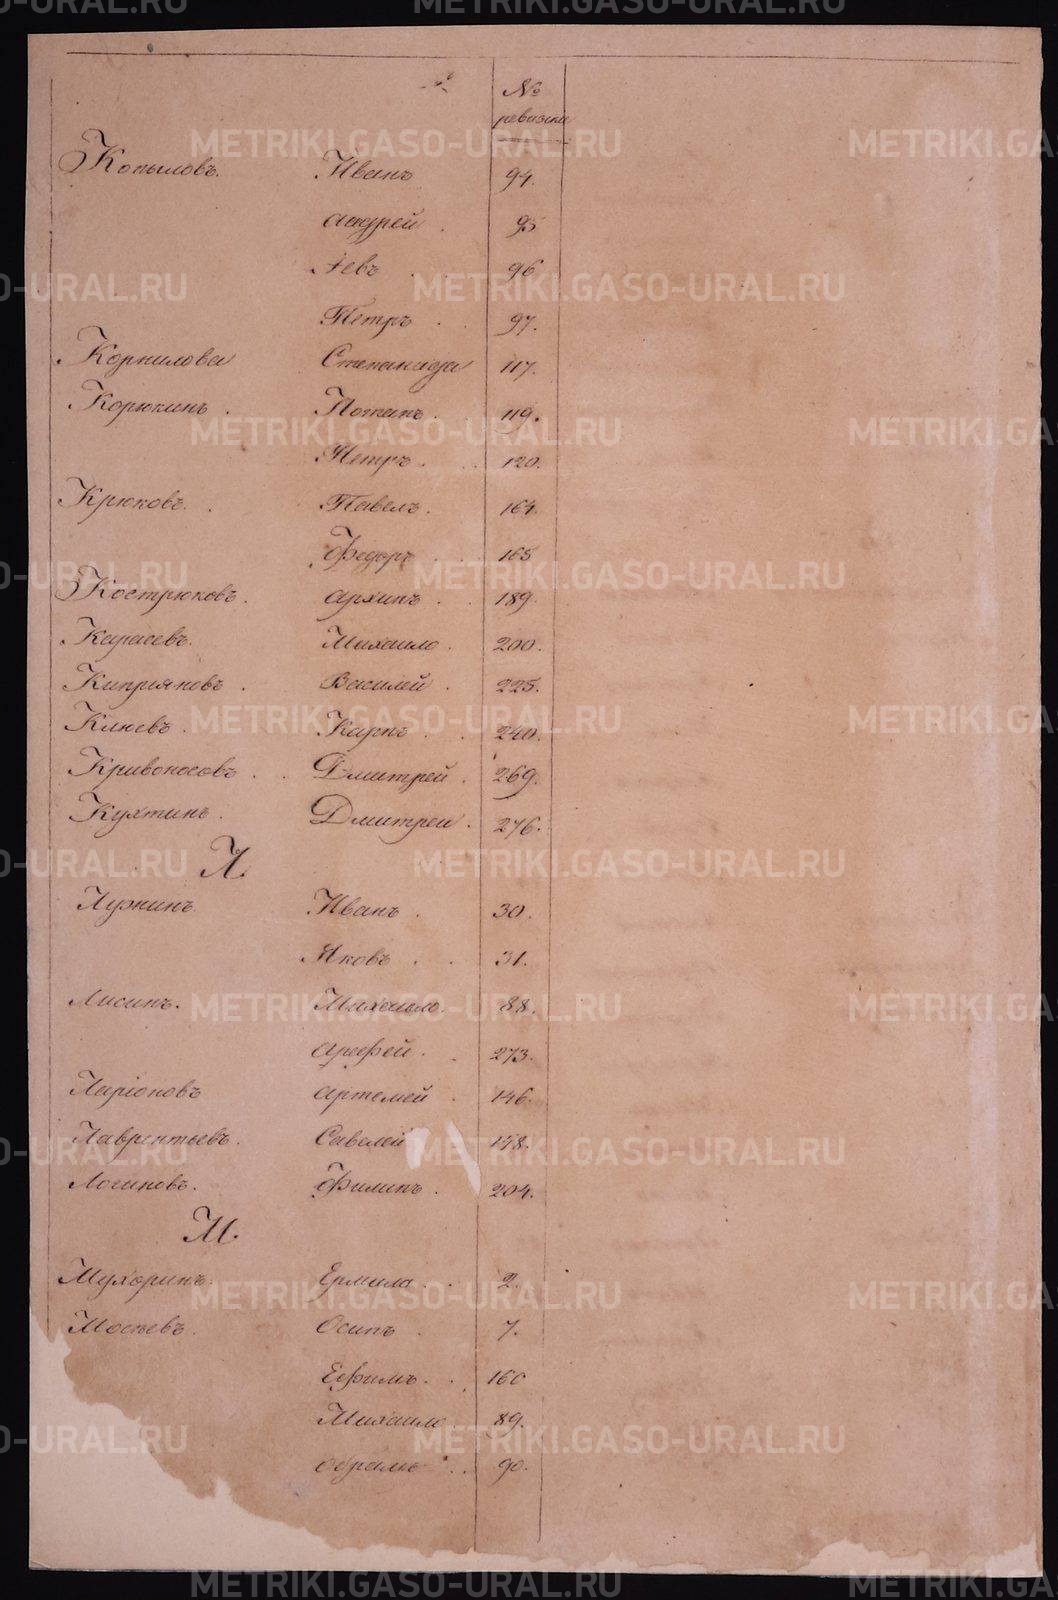 №
ревизии
Копыловъ. Иванъ 94.
Андрей. 95
Левъ. 96
Петръ. 97.
Корнилова Степанида 117.
Корюкинъ. Потапъ. 119.
Петръ. 120.
Крюковъ. Павелъ. 164.
Федоръ. 165
Кострюковъ. Архипъ. 189.
Карасевъ. Михаило. 200.
Киприяновъ. Василей. 225.
Клюевъ. Карпъ. 240.
Кривоносовъ. Дмитрей. 269.
Кухтинъ. Дмитреи. 276.
Л.
Лузнинъ Иванъ. 30.
Яковъ. 31.
Лисинъ. Михаило. 88.
Арефей. 273.
Ларіоновъ Артемей. 146.
Лаврентьевъ. Савелей 148.
Логиновъ. Филипъ. 204.
М.
Мухоринъ. Ермила. 2.
Мосѣевъ. Осипъ. 7.
Ефимъ. 160
Михаило 89.
90.
METRIKI.GASO-URAL.RU